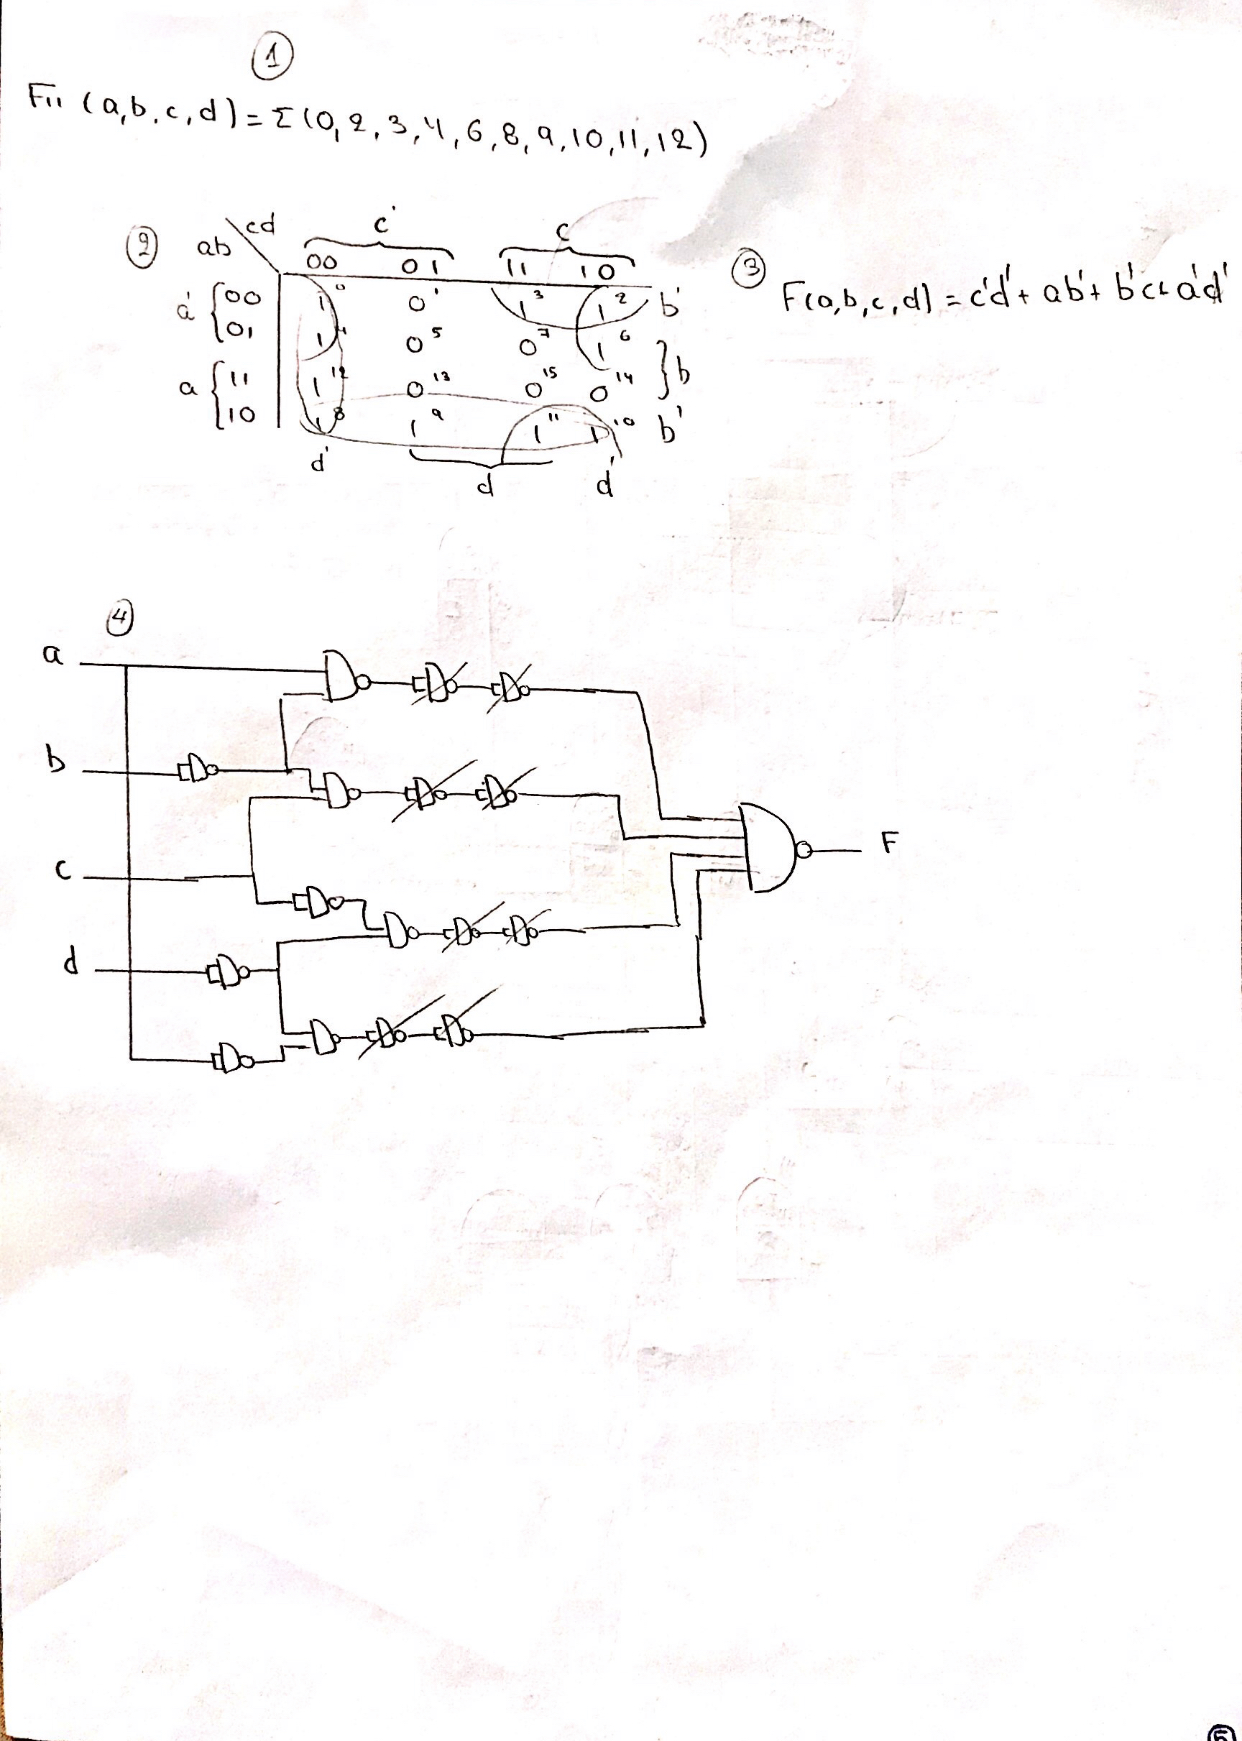 ①
F11 (a,b,c,d) = Σ(0,2,3,4,6,8,9,10,11,12)
② ab \ cd c' c
00 01 11 10
a' { 00 1 0 0 1 1 3 1 2 b'
01 1 4 0 5 0 7 1 6
a { 11 1 12 0 13 0 15 0 14 } b
10 1 8 1 9 1 11 1 10 b'
d' d d'
③ F(a,b,c,d) = c'd' + ab' + b'c + a'd'
④
a
b
c
d
F
⑤